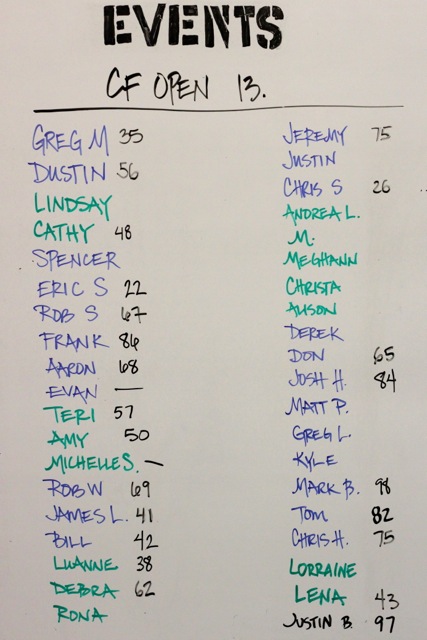 EVENTS
CF OPEN 13.
GREG M 35
DUSTIN 56
LINDSAY
CATHY 48
SPENCER
ERIC S 22
ROB S 67
FRANK 86
AARON 68
EVAN —
TERI 57
AMY 50
MICHELLE S. —
ROB W 69
JAMES L. 41
BILL 42
LUANNE 38
DEBRA 62
RONA
JEREMY 75
JUSTIN
CHRIS S 26
ANDREA L.
M.
MEGHANN
CHRISTA
ALISON
DEREK
DON 65
JOSH H. 84
MATT P.
GREG L.
KYLE
MARK B. 98
TOM 82
CHRIS H. 75
LORRAINE
LENA 43
JUSTIN B. 97